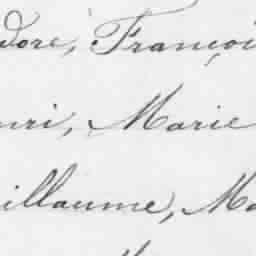 dore, Françoi
nri, Marie
illaume, Ma